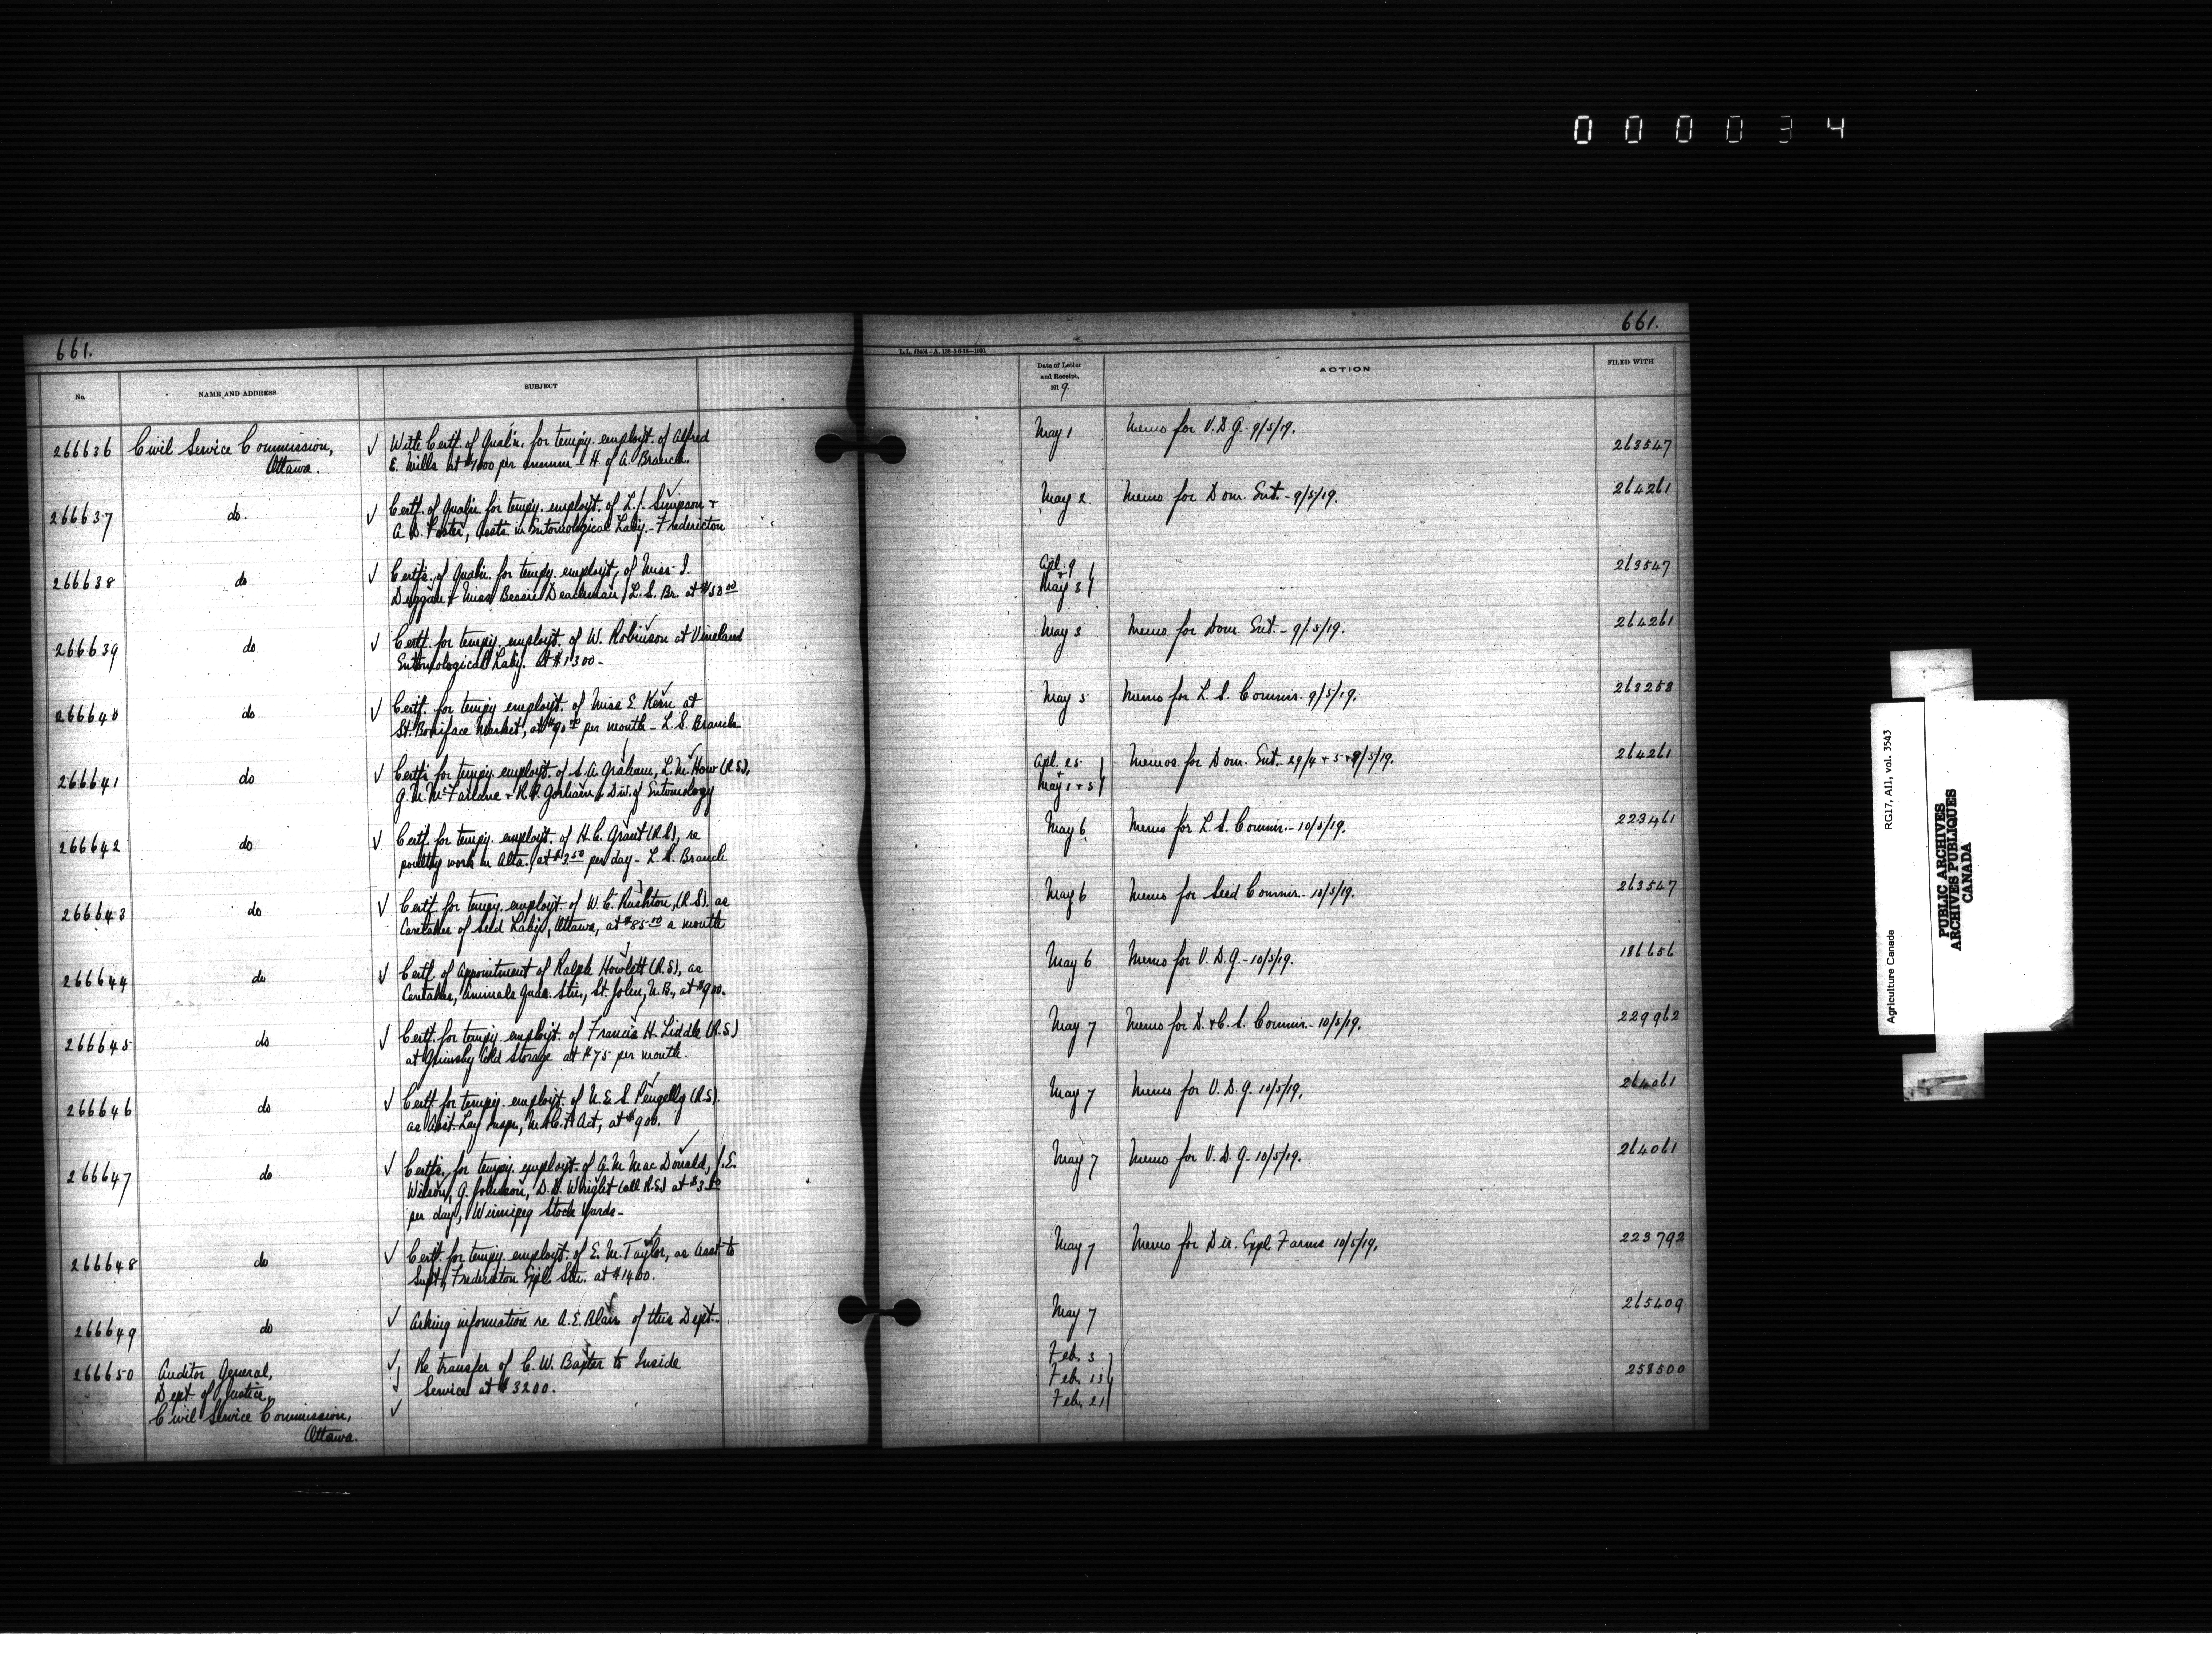 000034
661.
661.
L.L. 62434-A. 128-5-6-18-1000.
No.
NAME AND ADDRESS
SUBJECT
Date of Letter
and Receipt,
1919.
ACTION
FILED WITH
266636 Civil Service Commission, √ With Certf. of Qual'n. for tempy. employt. of Alfred May 1 Memo for V.D.G. 9/5/19. 263547
Ottawa. E. Mills at per annum - H. of A. Branch.
266637 do. √ Certf. of Qual'n for tempy. employt. of L.J. Simpson + May 2 Memo for Dom. Ent. - 9/5/19. 264261
A.B. Foster, Assts in Entomological Laby. - Fredericton
266638 do √ Certfs. of Qual'n. for tempy. employt. of Miss I. Apl. 9 263547
Duggan + Miss Bessie Deachman, L.S. Br. at $50 00 + May 3
266639 do √ Certf. for tempy. employt. of W. Robinson at Vineland May 3 Memo for Dom. Ent. - 9/5/19. 264261
Entomological Laby. at $1300 -
266640 do √ Certf. for tempy employt. of Miss E. Kern at May 5 Memo for L.S. Commr. 9/5/19. 263258
St. Boniface Market, at $90 00 per month - L.S. Branch
266641 do √ Certfs for tempy. employt. of S.A. Graham, L.M. How (R.S), Apl. 25 Memos. for Dom. Ent. 29/4 + 5 + 9/5/19. 264261
G.M. McFarlane + R.P. Gorham, Div. of Entomology + May 1 + 5
266642 do √ Certf. for tempy. employt. of H.C. Grant (R.S), re May 6 Memo for L.S. Commr. - 10/5/19. 223461
poultry work in Alta. at $3.50 per day - L.S. Branch
266643 do √ Certf. for tempy. employt. of W.C. Rushton, (R.S). as May 6 Memo for Seed Commr. - 10/5/19. 263547
Caretaker of Seed Laby., Ottawa, at $85 00 a month
266644 do √ Certf. of Appointment of Ralph Howlett (R.S), as May 6 Memo for V.D.G. - 10/5/19. 186656
Caretaker, Animals Quar. Stn., St. John, N.B., at $900.
266645 do √ Certf. for tempy. employt. of Francis H. Liddle (R.S) May 7 Memo for D. + C.S. Commr. - 10/5/19. 229962
at Grimsby Cold Storage at $75 per month.
266646 do √ Certf. for tempy. employt. of N.E.S. Pengelly (R.S). May 7 Memo for V.D.G. 10/5/19. 264061
as Asst. Lay Inspr., M + C.F. Act, at $900.
266647 do √ Certfs. for tempy. employt. of A.M. MacDonald, J.E. May 7 Memo for V.D.G. - 10/5/19. 264061
Wilson, G. Johnson, D.D. Wright (all R.S) at
per day, Winnipeg Stock Yards -
266648 do √ Certf. for tempy. employt. of E.M. Taylor, as Asst. to May 7 Memo for Dir. Expl. Farms 10/5/19. 223792
Supt., Fredericton Expl. Stn. at $1400.
266649 do √ Asking information re A.E. Blair of this Dept. - May 7 265409
266650 Auditor General, √ Re transfer of C.W. Baxter to Inside Feb. 3 258500
Dept. of Justice, √ Service at $3200. Feb. 13
Civil Service Commission, √ Feb. 21
Ottawa.
Agriculture Canada
RG17, AII1, vol. 3543
PUBLIC ARCHIVES
ARCHIVES PUBLIQUES
CANADA